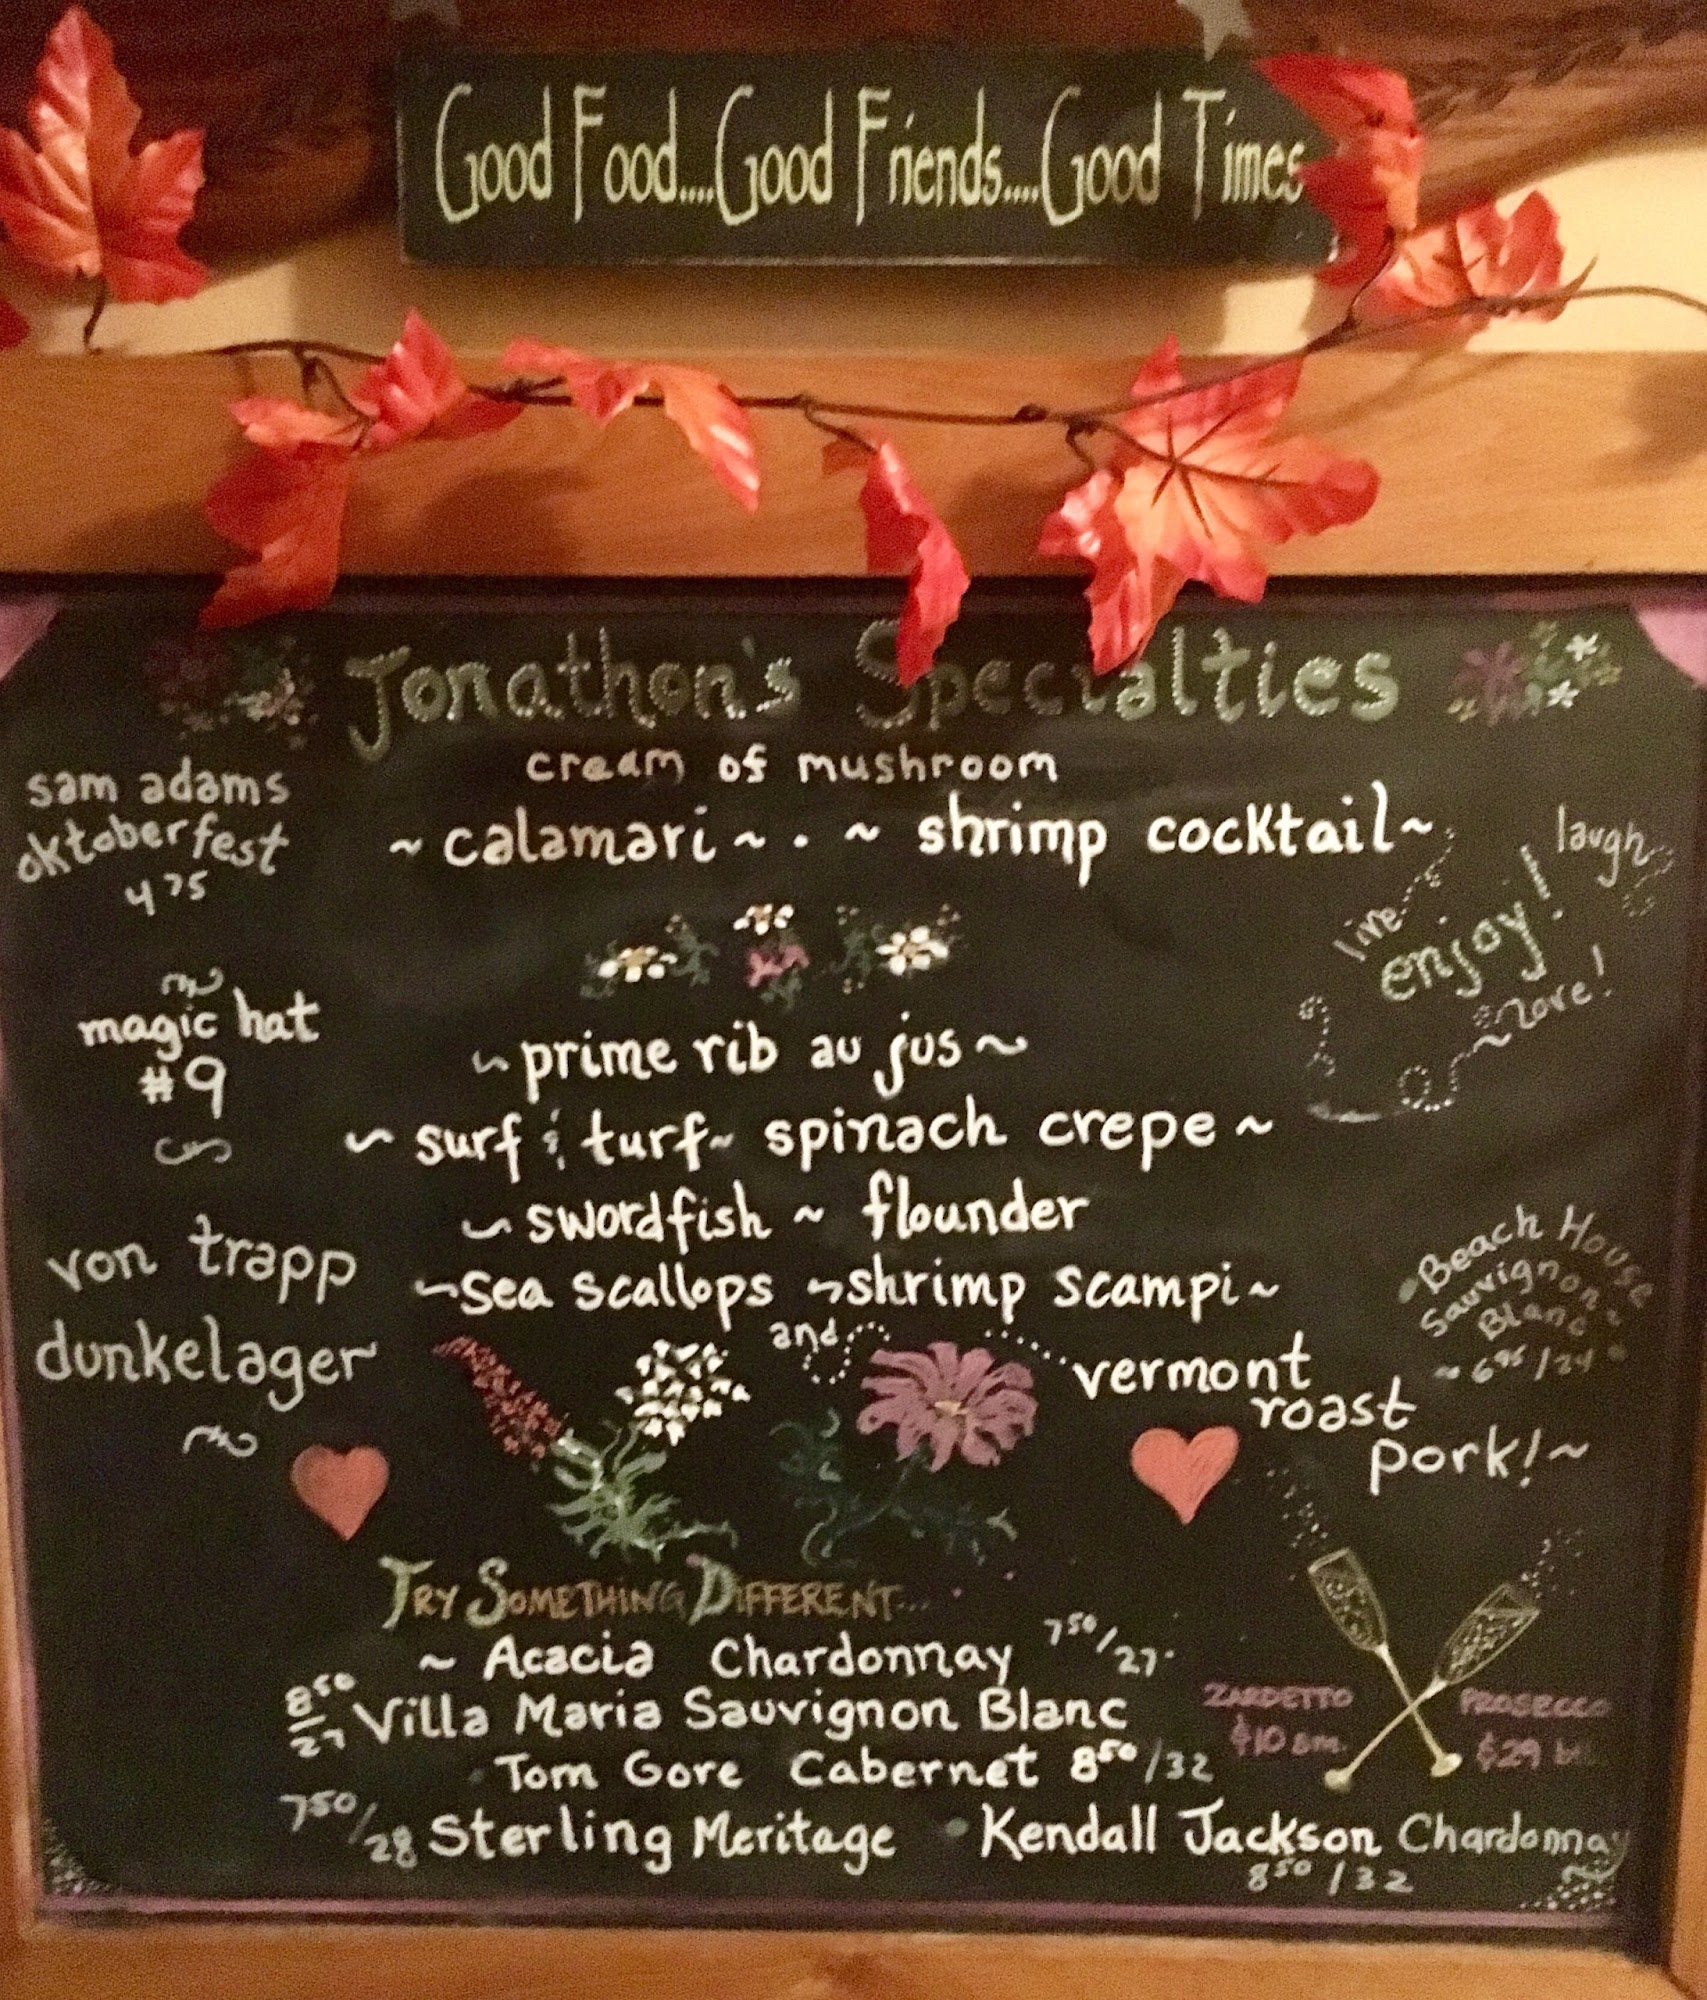 Good Food....Good Friends....Good Times
Jonathon's Specialties
cream of mushroom
~ calamari ~ . ~ shrimp cocktail ~
sam adams
oktoberfest
4 75
magic hat
#9
von trapp
dunkelager
live
laugh
enjoy!
love!
~ prime rib au jus ~
~ surf & turf ~ spinach crepe ~
~ swordfish ~ flounder
~ sea scallops ~ shrimp scampi ~
and
vermont
roast
pork! ~
Beach House
Sauvignon
Blanc
~ 6 95 / 24
Try Something Different...
~ Acacia Chardonnay 7 50 / 27
8 50 / 27 Villa Maria Sauvignon Blanc
Tom Gore Cabernet 8 50 / 32
7 50 / 28 Sterling Meritage
Kendall Jackson Chardonnay
8 50 / 32
ZARDETTO PROSECCO
$10 sm. $29